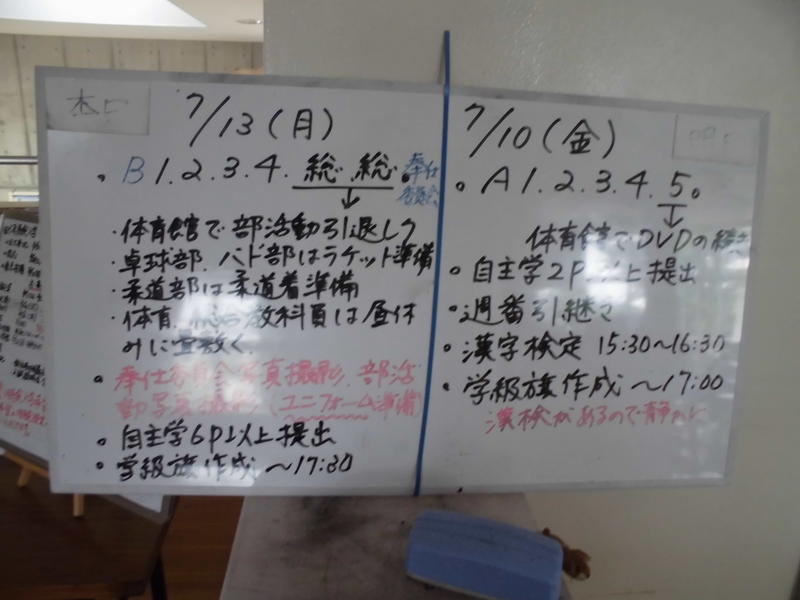 本日
7/13(月)
・B 1.2.3.4. 総.総.奉仕
委員会
・体育館で部活動引退しク
・卓球部、バド部はラケット準備
・柔道部は柔道着準備
・体育、総合教科員は昼休
みに宣教く。
・奉仕委員会写真撮影、部活
動写真撮影(ユニフォーム準備)
・自主学6P以上提出
・学級旗作成 〜17:30
7/10(金)
・A 1.2.3.4.5。
体育館でDVDの続き
・自主学2P以上提出
・週番引継ぎ
・漢字検定 15:30〜16:30
・学級旗作成 〜17:00
漢検があるので静かに